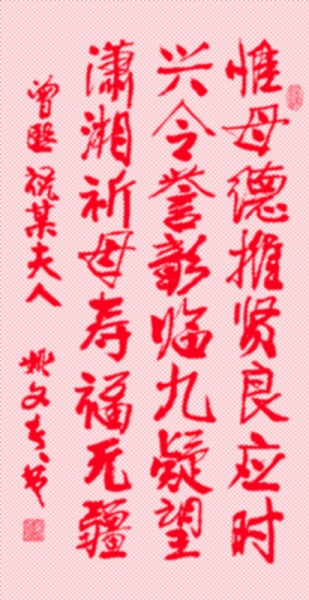 惟母德推贤良应时
兴令誉彰临九疑望
潇湘祈母寿福无疆
曾熙祝某夫人
姚文青书